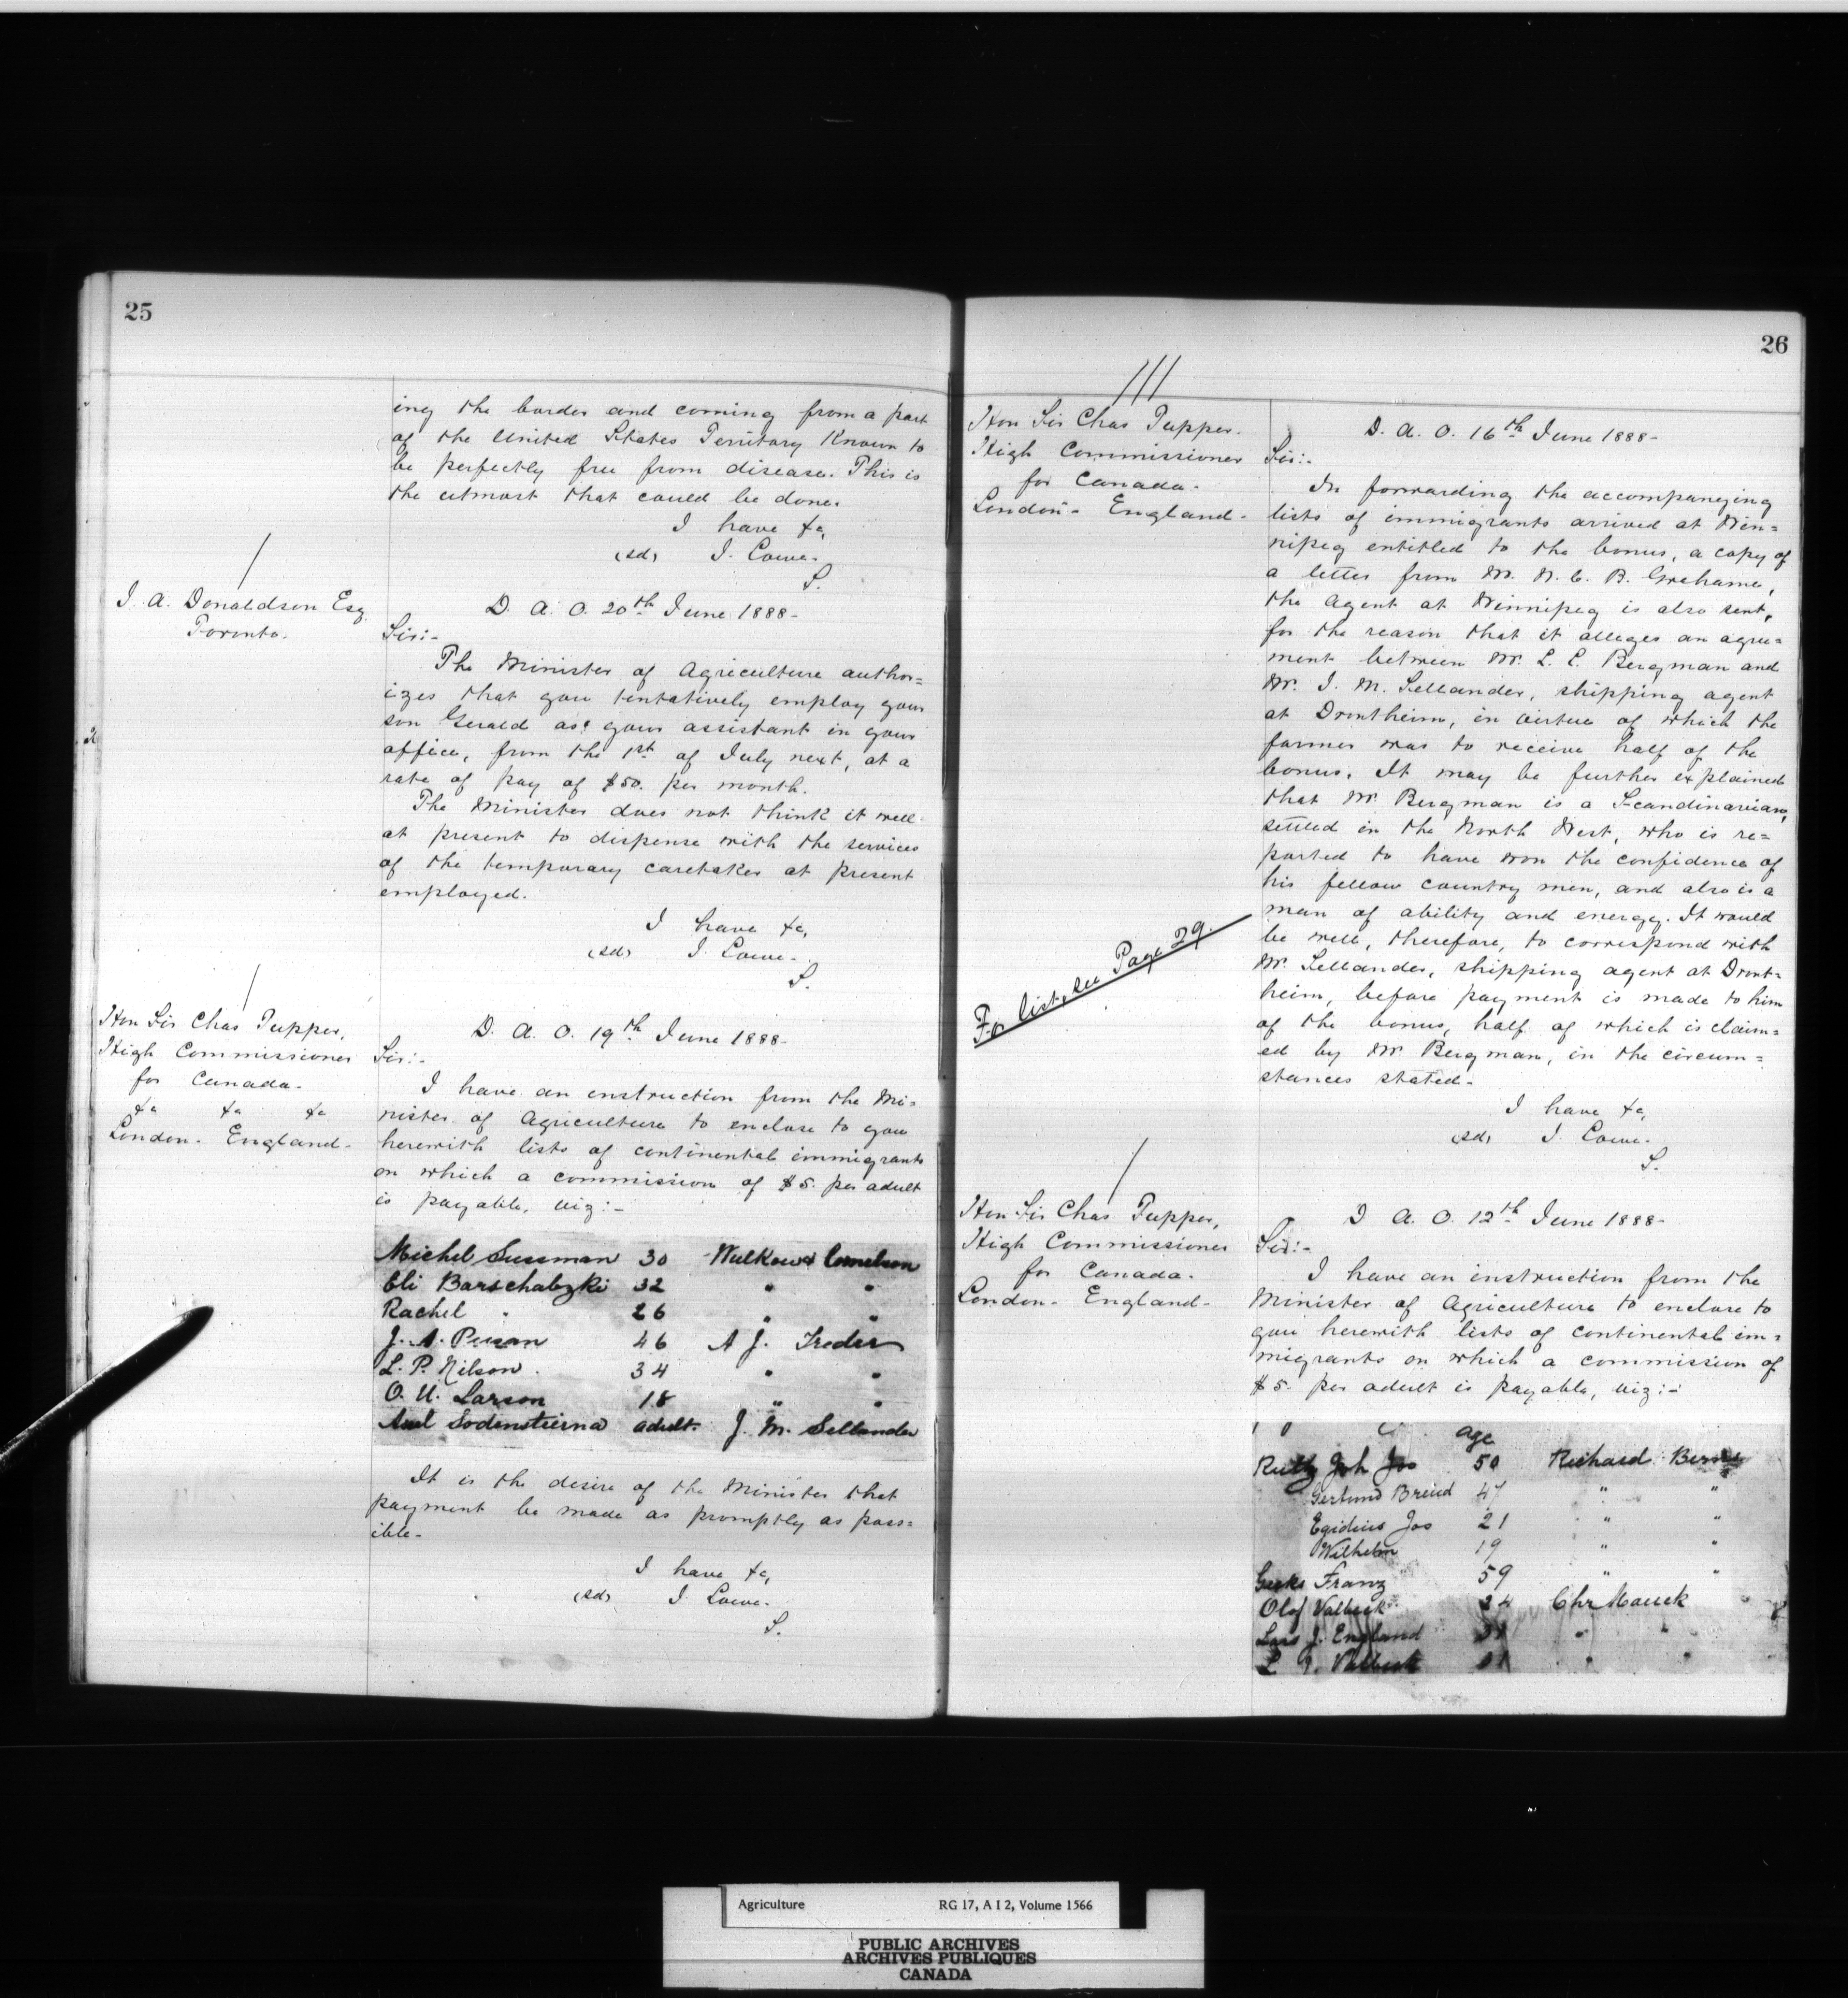 25
ing the border and coming from a part
of the United States Territory Known to
be perfectly free from disease. This is
the utmost that could be done.
I have &c,
(sd) J. Lowe.
S.
J. A. Donaldson Esq
Toronto.
D. A. O. 20th June 1888-
Sir:-
The Minister of Agriculture author=
izes that you tentatively employ your
son Gerald as your assistant in your
office, from the 1st of July next, at a
rate of pay of $50. per month.
The Minister does not think it well
at present to dispense with the services
of the temporary caretaker at present
employed.
I have &c,
(sd) J. Lowe.
S.
Hon Sir Chas Tupper,
High Commissioner
for Canada.
&c &c &c
London. England-
D. A. O. 19th June 1888-
Sir:-
I have an instruction from the Mi=
nister of Agriculture to enclose to you
herewith lists of continental immigrants
on which a commission of $5. per adult
is payable, viz:-
Michel Sussman 30 Wulkow & Cornelson
Eli Barschatzki 32 " "
Rachel " 26 " "
J. A. 46 A J.
L. P. Nilson. 34 " "
O. U. Larson 18 " "
Sodenstierna adult. J. M. Sellander
It is the desire of the Minister that
payment be made as promptly as poss=
ible-
I have &c,
(sd) J. Lowe.
S.
26
Hon Sir Chas Tupper.
High Commissioner
for Canada.
London- England-
D. A. O. 16th June 1888-
Sir:-
In forwarding the accompanying
lists of immigrants arrived at Win=
nipeg entitled to the bonus, a copy of
a letter from Mr. W. C. B. Grahame,
the Agent at Winnipeg is also sent,
for the reason that it alleges an agree=
ment between Mr. L. E. Bergman and
Mr. J. M. Sellander, shipping agent
at Drontheim, in virtue of which the
former was to receive half of the
bonus. It may be further explained
that Mr Bergman is a Scandinavian,
settled in the North West, who is re=
ported to have won the confidence of
his fellow country men, and also is a
man of ability and energy. It would
be well, therefore, to correspond with
Mr. Sellander, shipping agent at Dront=
heim, before payment is made to him
of the bonus, half of which is claim=
ed by Mr Bergman, in the circum=
stances stated-
For list, see Page 29.
I have &c,
(sd) J. Lowe.
S.
Hon Sir Chas Tupper,
High Commissioner
for Canada.
London- England-
D A. O. 12th June 1888-
Sir:-
I have an instruction from the
Minister of Agriculture to enclose to
you herewith lists of continental im=
migrants on which a commission of
$5. per adult is payable, viz:-
age
Joh Jos 50 Richard Berns
47 " "
Egidius Jos 21 " "
Wilhelm 19 " "
Franz 59 " "
Olof Valbeck 24 Chr Mauck
Lars J. England " "
L J. Valbeck " "
Agriculture RG 17, A I 2, Volume 1566
PUBLIC ARCHIVES
ARCHIVES PUBLIQUES
CANADA